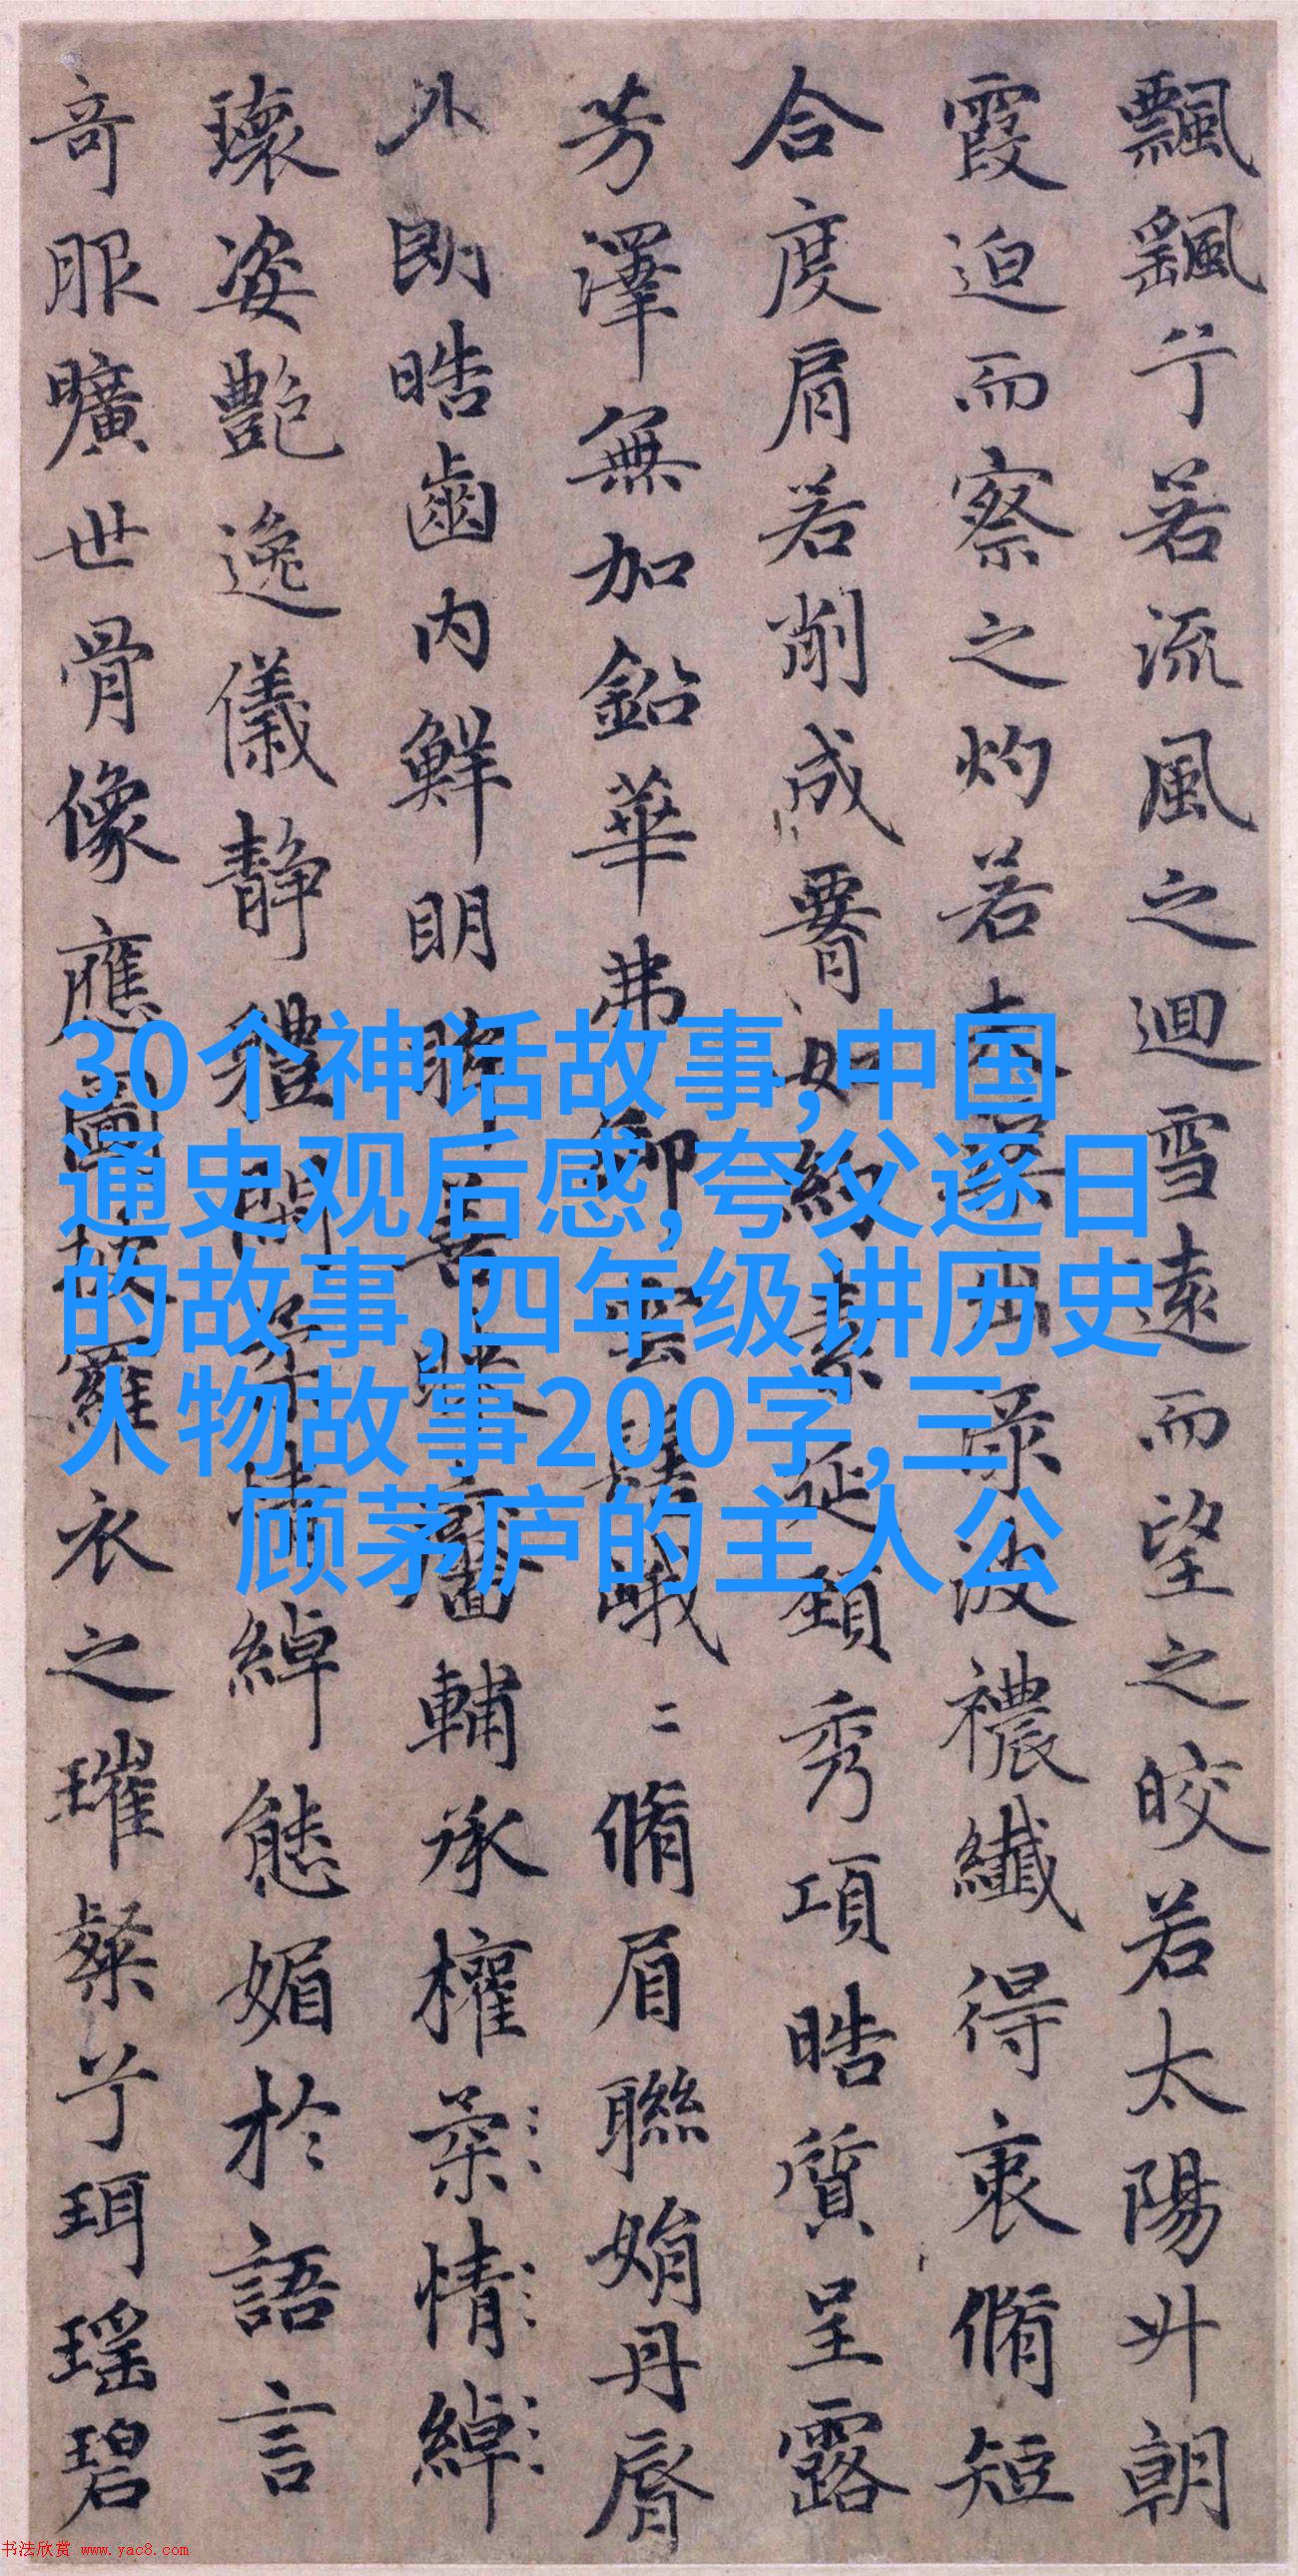 飄飖兮若流風之迴雪遠而望之皎若太陽升朝
霞迫而察之灼若夫蕖出渌波襛纖得衷脩短
合度肩若削成腰如約素延頸秀項皓質呈露
芳澤無加鉛華弗御雲髻峨二脩眉聯娟丹脣
外朗皓齒内鮮明眸善睞靨輔承權柔情綽
瓌姿艷逸儀静體閑柔情綽態媚於語言
奇服曠世骨像應圖披羅衣之璀粲兮珥瑶碧
30个神话故事,中国
通史观后感,夸父逐日
的故事,四年级讲历史
人物故事200字,三
顾茅庐的主人公
书法欣赏 www.yac8.com